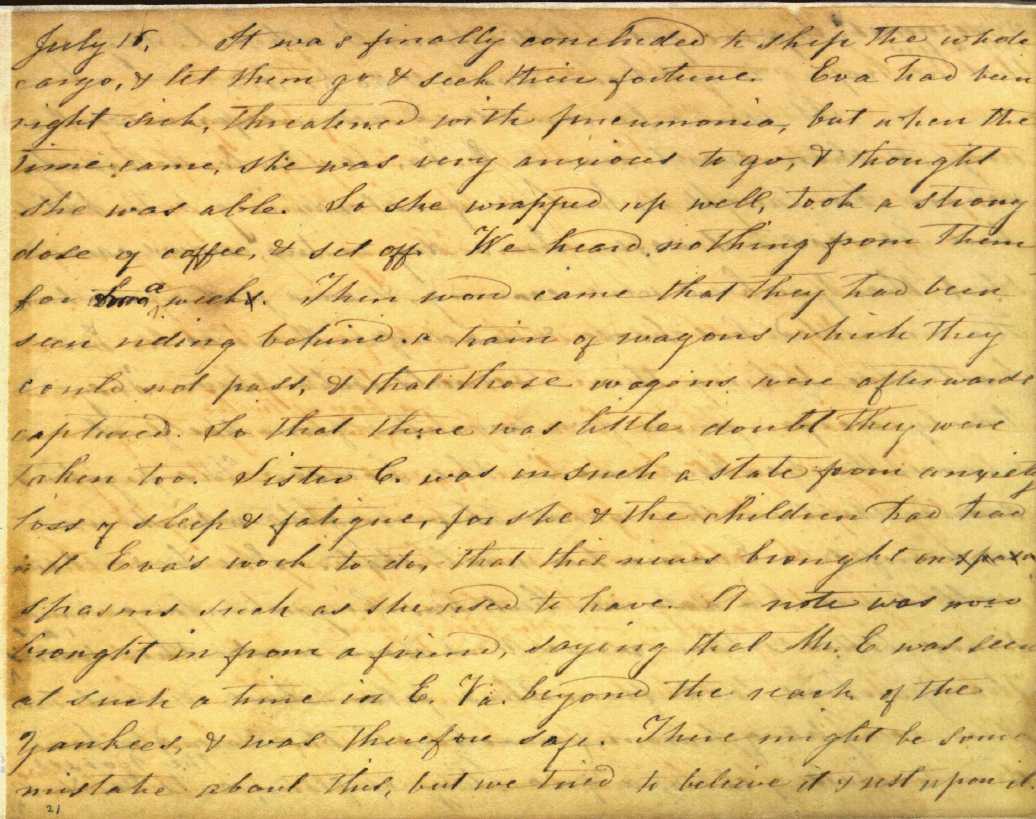 July 18. It was finally concluded to ship the whole
cargo, & let them go & seek their fortune. Eva had been
right sick, threatened with pneumonia, but when the
time came, she was very anxious to go, & thought
she was able. So she wrapped up well, took a strong
dose of coffee, & set off. We heard nothing from them
for a week. Then word came that they had been
seen riding behind a train of wagons which they
could not pass, & that those wagons were afterwards
captured. So that there was little doubt they were
taken too. Sister C. was in such a state from anxiety
loss of sleep & fatigue, for she & the children had had
all Eva's work to do, that this news brought on
spasms such as she used to have. A note was now
brought in from a friend, saying that Mr. C was seen
at such a time in E. Va. beyond the reach of the
Yankees, & was therefore safe. There might be some
mistake about this, but we tried to believe it & rest upon it
21